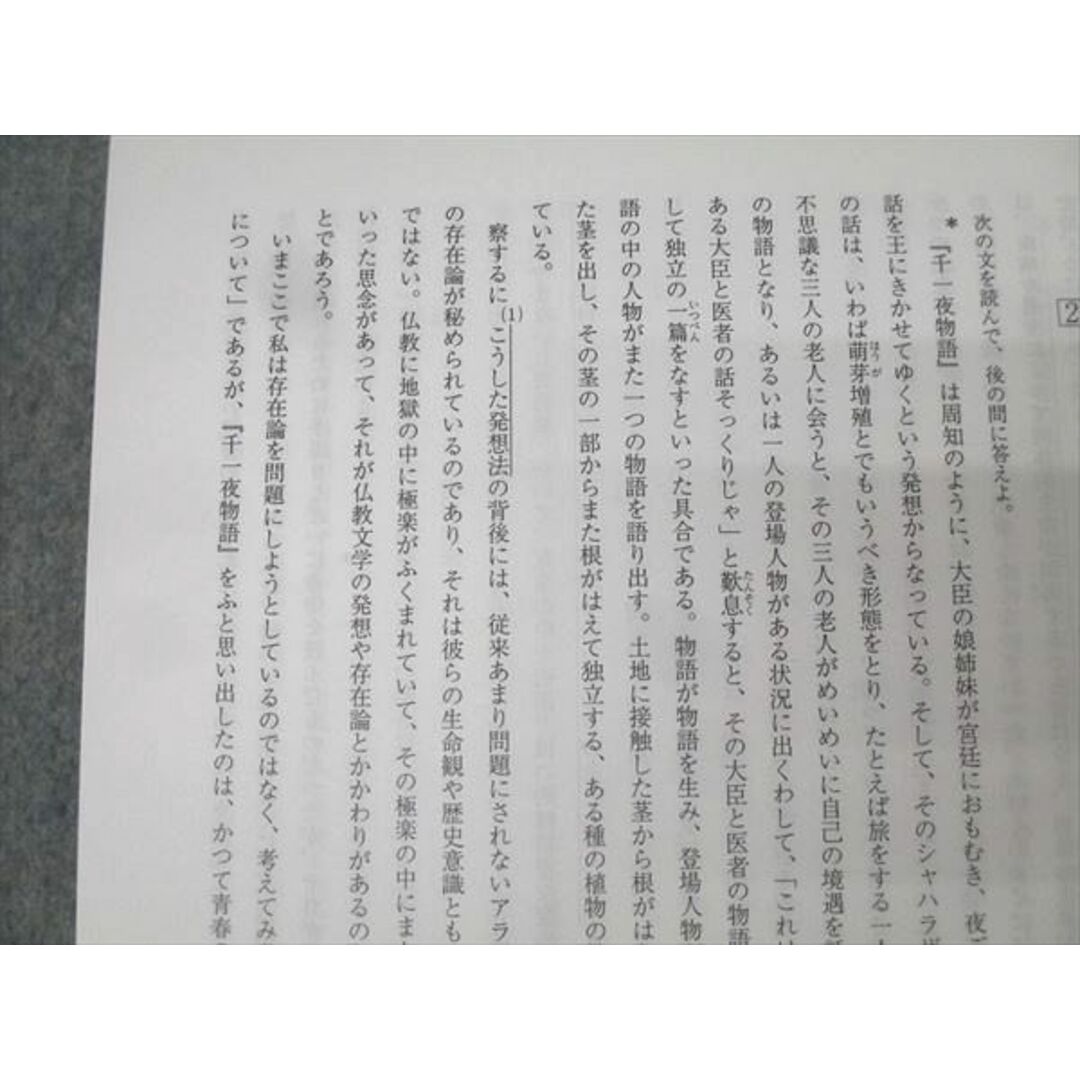 2
次の文を読んで、後の問に答えよ。
*『千一夜物語』は周知のように、大臣の娘姉妹が宮廷におもむき、夜
話を王にきかせてゆくという発想からなっている。そして、そのシャハラ
の話は、いわば萌芽増殖とでもいうべき形態をとり、たとえば旅をする一
不思議な三人の老人に会うと、その三人の老人がめいめいに自己の境遇を
の物語となり、あるいは一人の登場人物がある状況に出くわして、「これは
ある大臣と医者の話そっくりじゃ」と歎息すると、その大臣と医者の物語
して独立の一篇をなすといった具合である。物語が物語を生み、登場人物
語の中の人物がまた一つの物語を語り出す。土地に接触した茎から根がは
た茎を出し、その茎の一部からまた根がはえて独立する、ある種の植物の
ている。
察するに(1)こうした発想法の背後には、従来あまり問題にされないアラ
の存在論が秘められているのであり、それは彼らの生命観や歴史意識とも
ではない。仏教に地獄の中に極楽がふくまれていて、その極楽の中にまた
いった思念があって、それが仏教文学の発想や存在論とかかわりがあるの
とであろう。
いまここで私は存在論を問題にしようとしているのではなく、考えてみ
について」であるが、『千一夜物語』をふと思い出したのは、かつて青春